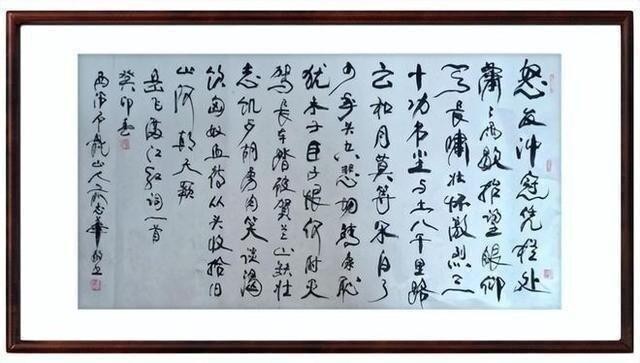 怒发冲冠凭栏处
潇々雨歇抬望眼仰
天长啸壮怀激烈三
十功名尘与土八千里路
云和月莫等闲白了
少年头空悲切靖康耻
犹未雪臣子恨何时灭
驾长车踏破贺兰山缺壮
志饥餐胡虏肉笑谈渴
饮匈奴血待从头收拾旧
山河朝天阙
岳飞满江红词一首
癸卯春
山人